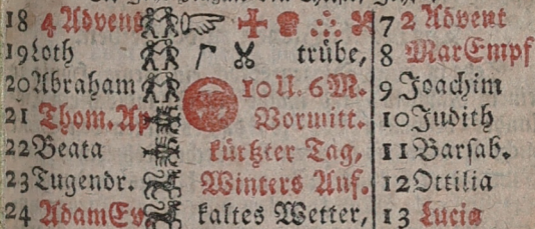 18 4 Advent 7 2 Advent
19 Loth trübe, 8 Mar Empf
20 Abraham 10 U. 6 M. 9 Joachim
21 Thom. Ap Vormitt. 10 Judith
22 Beata kürtzter Tag, 11 Barsab.
23 Tugendr. Winters Anf. 12 Ottilia
24 Adam Ev kaltes Wetter, 13 Lucia